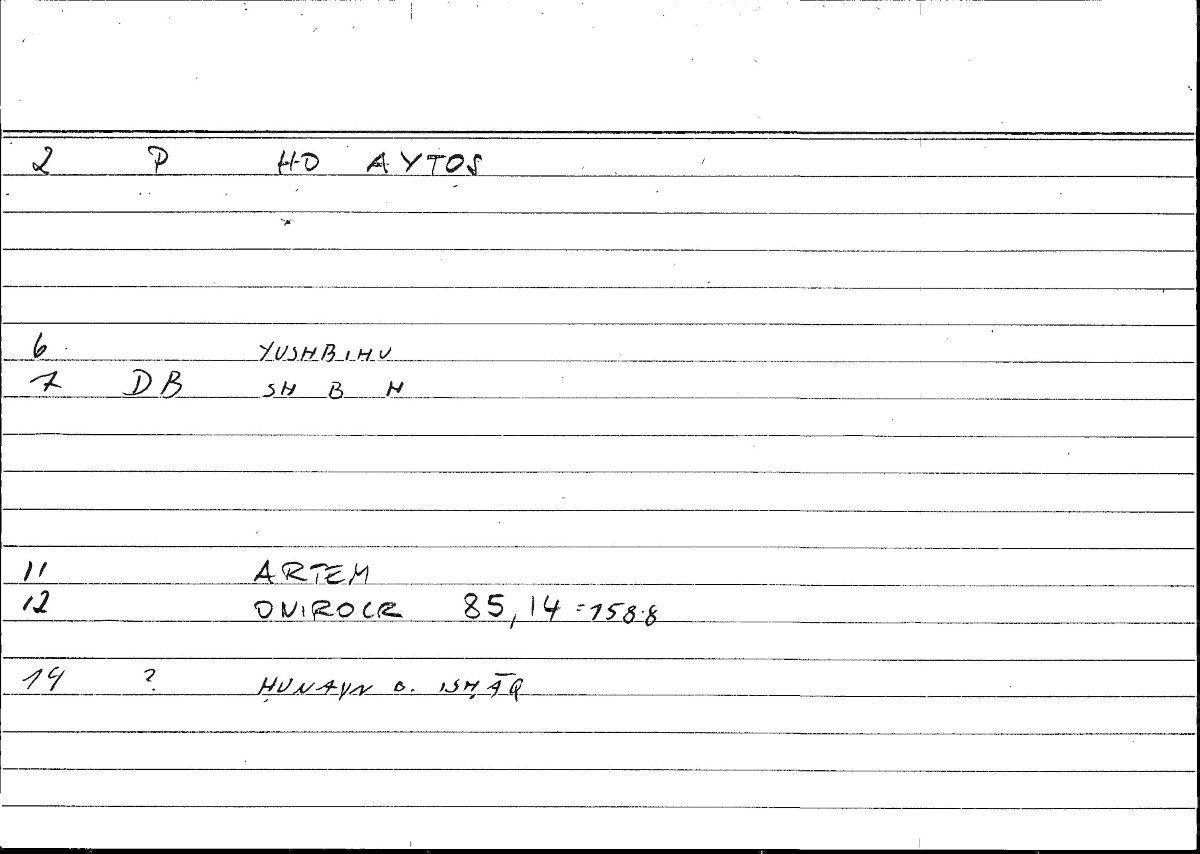 2 P HO AYTOS
6 YUSHBIHU
7 DB SH B H
11 ARTEM
12 ONIROCR 85,14 =158.8
14 ? ḤUNAYN B. ISḤĀQ